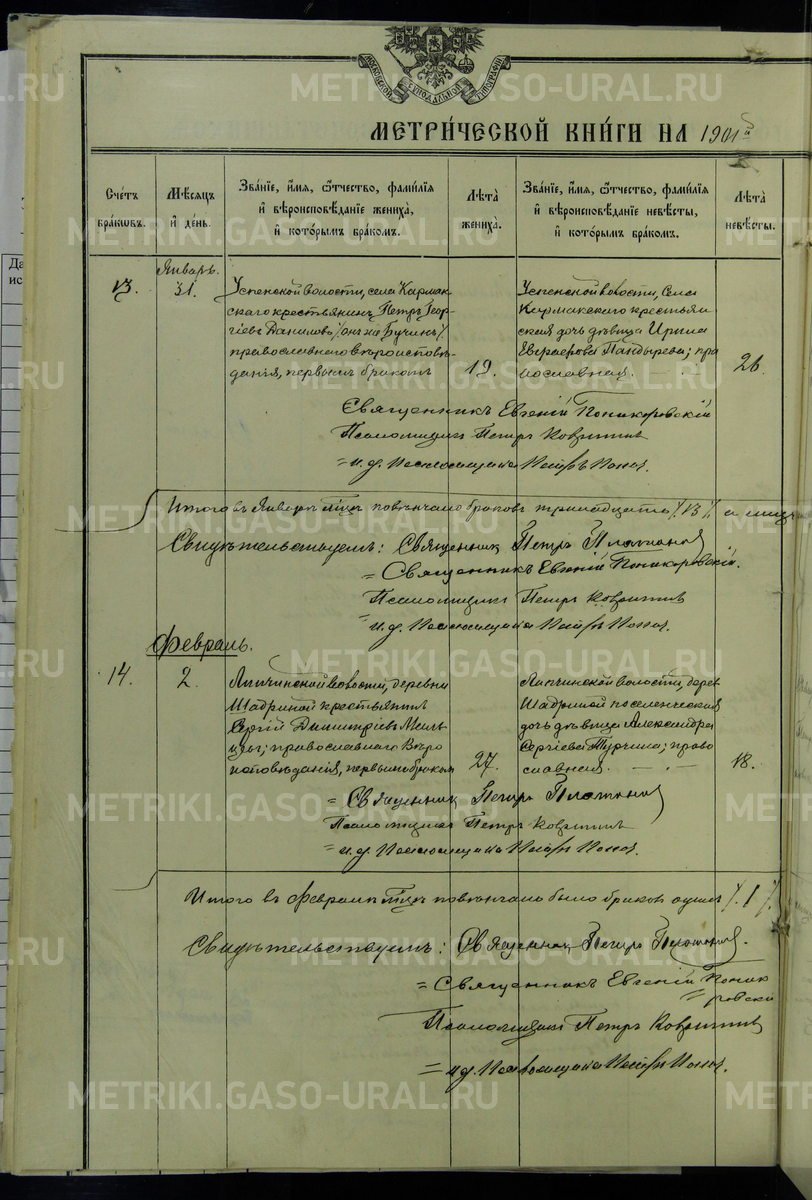 МОСКОВСКОЙ СѴНОДАЛЬНОЙ ТИПОГРАФІИ
МЕТРИ́ЧЕСКОЙ КНИ́ГИ НА 1901й
Сче́тъ бра́ковъ.
Мѣ́сяцъ и҆ де́нь.
Зва́нїе, и҆́мѧ, ѻ҆́тчество, фами́лїѧ
и҆ вѣроисповѣ́данїе жениха̀,
и҆ кото́рымъ бра́комъ.
Лѣ́та жениха̀.
Зва́нїе, и҆́мѧ, ѻ҆́тчество, фами́лїѧ
и҆ вѣроисповѣ́данїе невѣ́сты,
и҆ кото́рымъ бра́комъ.
Лѣ́та невѣ́сты.
Январь.
13.
31.
Успенской волости, села Кармак-
скаго крестьянинъ Петръ Геор-
гіевъ Даниловъ /онъ же Бучинъ/.
православнаго вѣроисповѣ-
данія, первымъ бракомъ
19.
Успенской волости, села
Кармакскаго крестьян
ская дочь дѣвица Ирина
Евграфова Пандырева; пра
вославная.
26.
Священникъ Евгеній Поникоровскій
Псаломщикъ Петръ
= и. д. Псаломщика
Итого въ Январѣ мцѣ повѣнчано браковъ тринадцать /.13/.
Свидѣтельствуемъ: Священникъ Петръ Платоновъ
= Священникъ Евгеній Поникоровскій.
Псаломщикъ Петръ
= и. д. Псаломщика
Февраль.
14.
2.
волости, деревни
Шадриной крестьянинъ
Сергій Димитріевъ
православнаго вѣро
исповѣданія, первымъ бракомъ
27.
волости, дерев
Шадриной поселенческая
дочь дѣвица Александра
Сергіева Турчина; право
славная.
18.
= Священникъ Петръ Платоновъ
Псаломщикъ Петръ
= и. д. Псаломщика
Итого въ Февралѣ мцѣ повѣнчано было браковъ одинъ /.1/.
Свидѣтельствуемъ: Священникъ Петръ Платоновъ.
= Священникъ Евгеній Поник
=ровскій
Псаломщикъ Петръ
= и. д. Псаломщика
METRIKI.GASO-URAL.RU